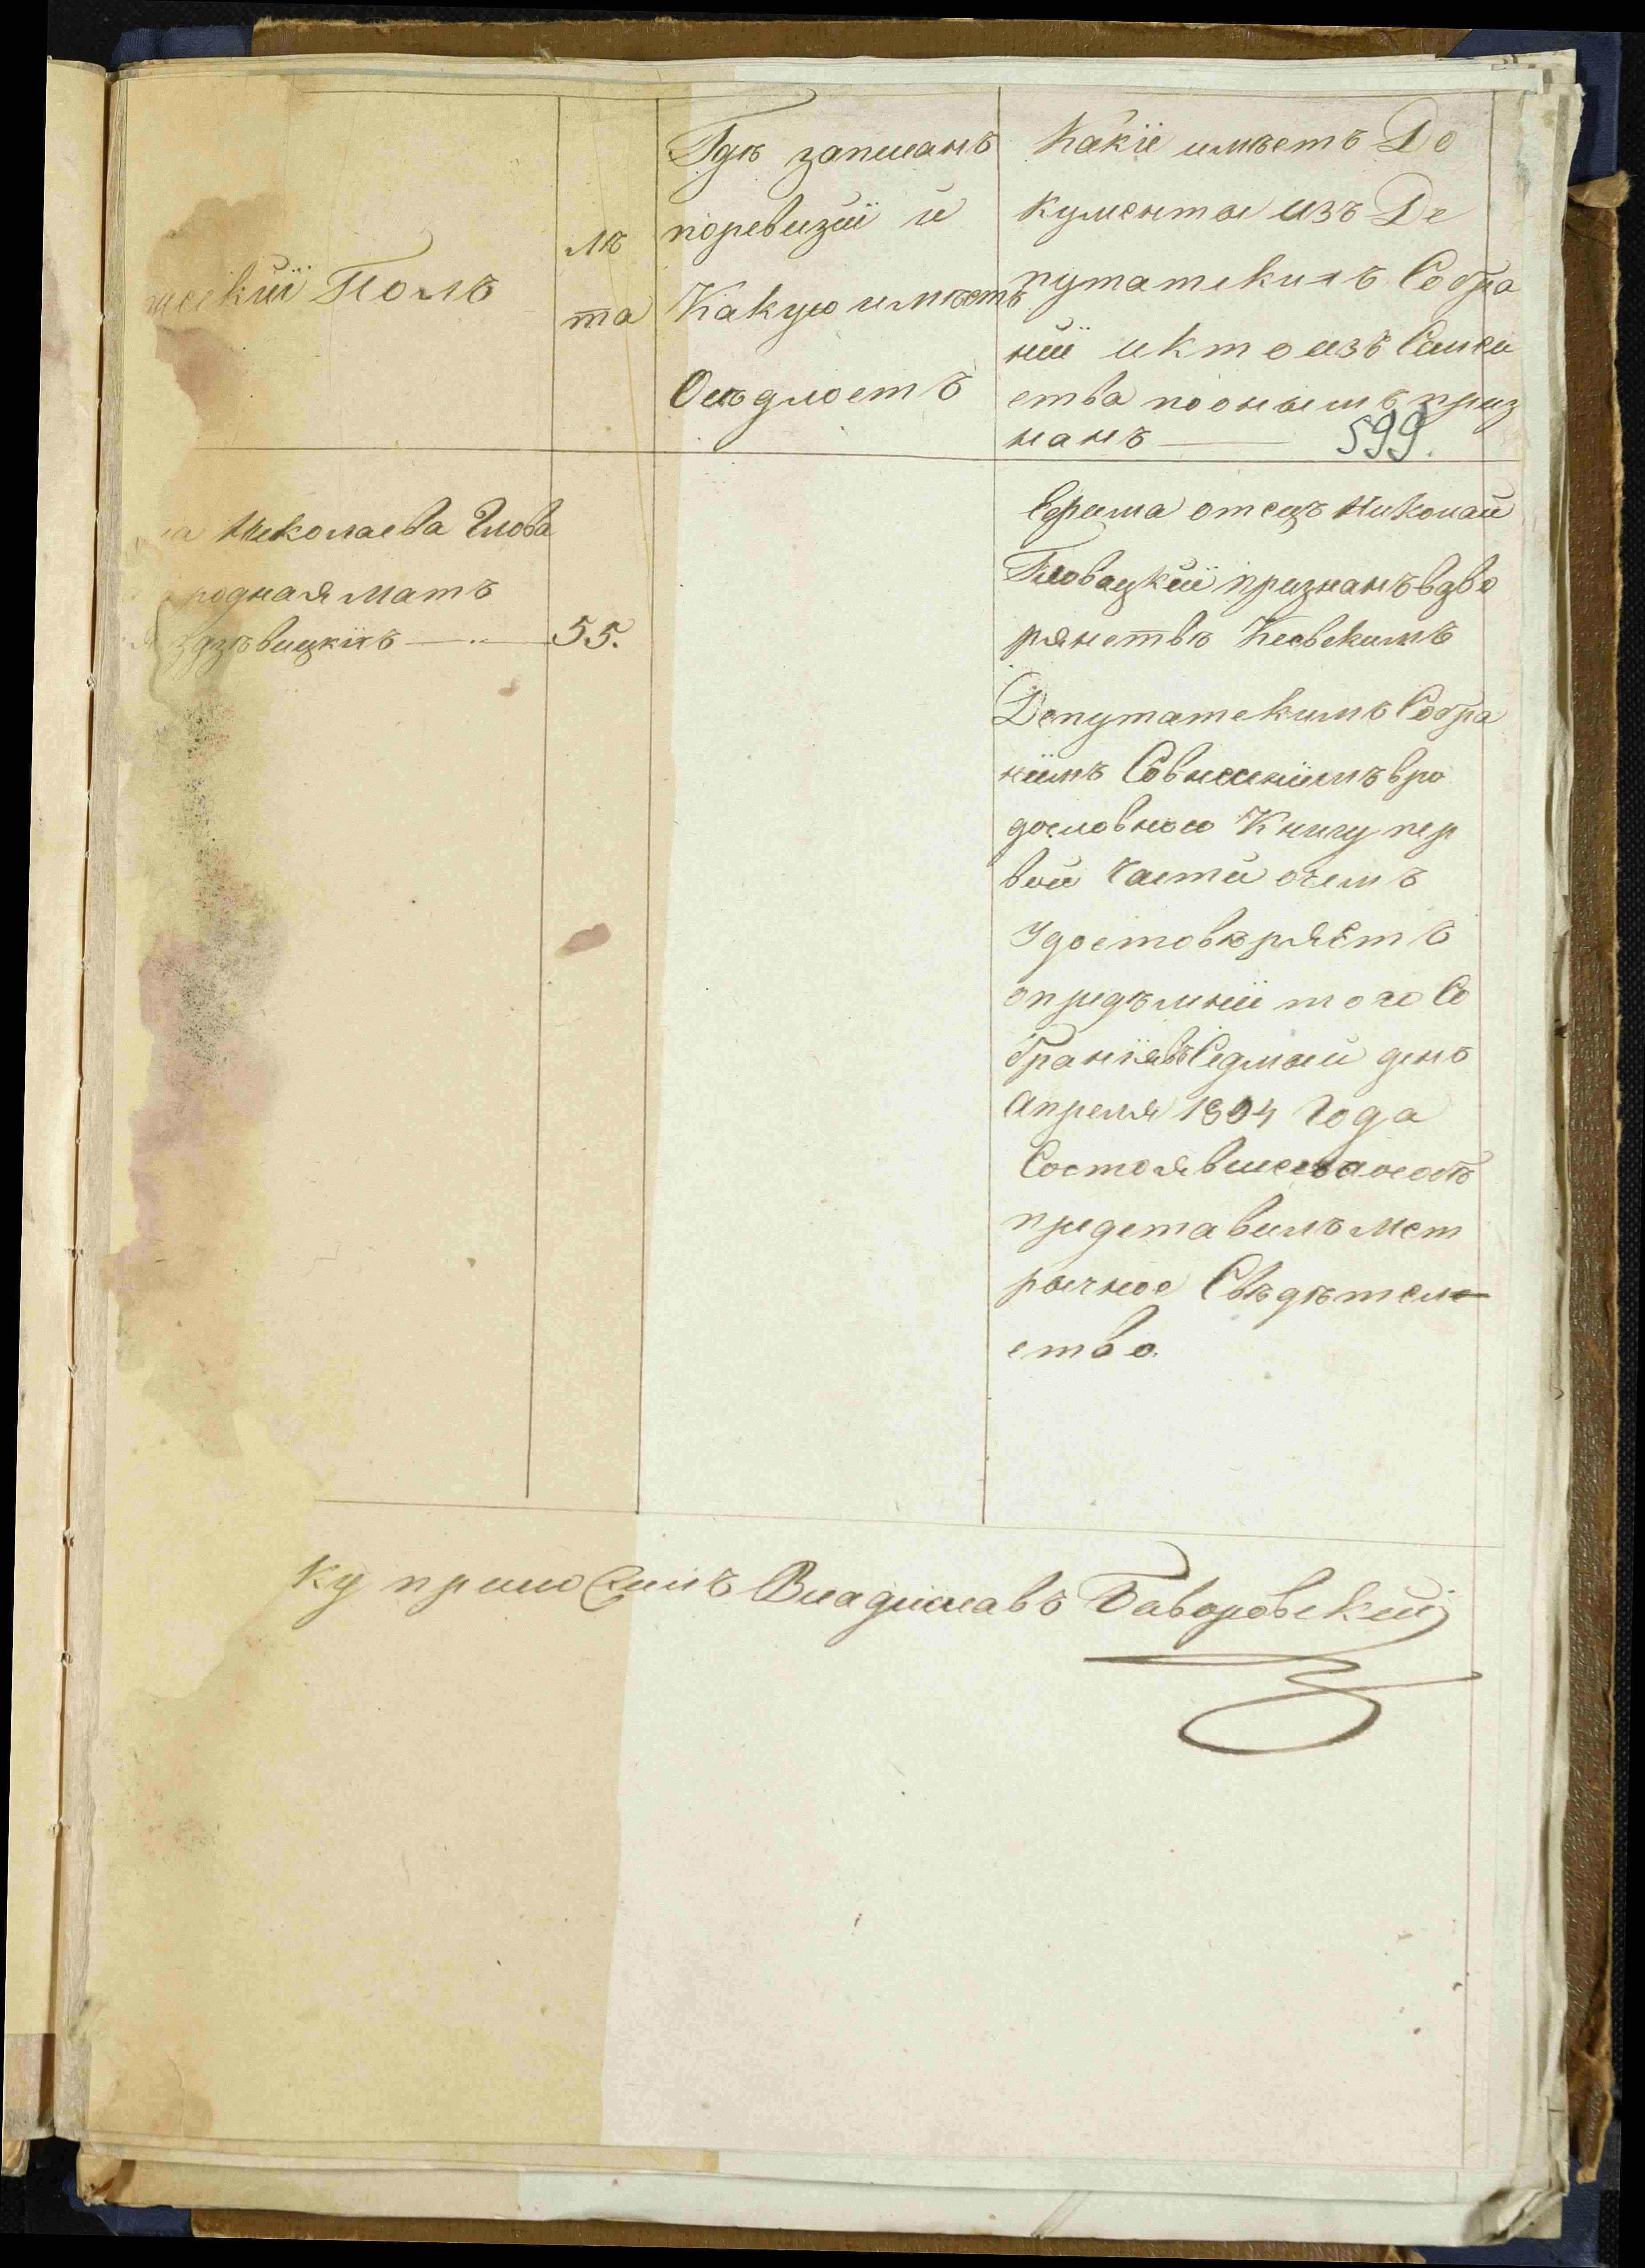 Женскїй Полъ
лѣ
та
Гдѣ записанъ
поревизїи и
Какую имѣетъ
Осѣдлость
Какїе имѣетъ До
кументы изъ Де
путатскихъ Собра
нїй икто изъ Семей
ства пооныемъ приз
нанъ
599.
Николаева Глова
родная мать
55.
Ефрема отецъ Николай
Гловацкїй признанъ вдво
рянствѣ Кіевскимъ
Депутатскимъ Собра
нїемъ Совнесенїемъ вро
дословную Книгу пер
вой Части очемъ
Удостовѣряетъ
опредѣленїе того Со
бранїя въ Седмый день
Апреля 1804 Года
Состоявшееся
представилъ мет
рычное Свѣдѣтель
ство.
Ку приносилъ Владиславъ Баворовскїй